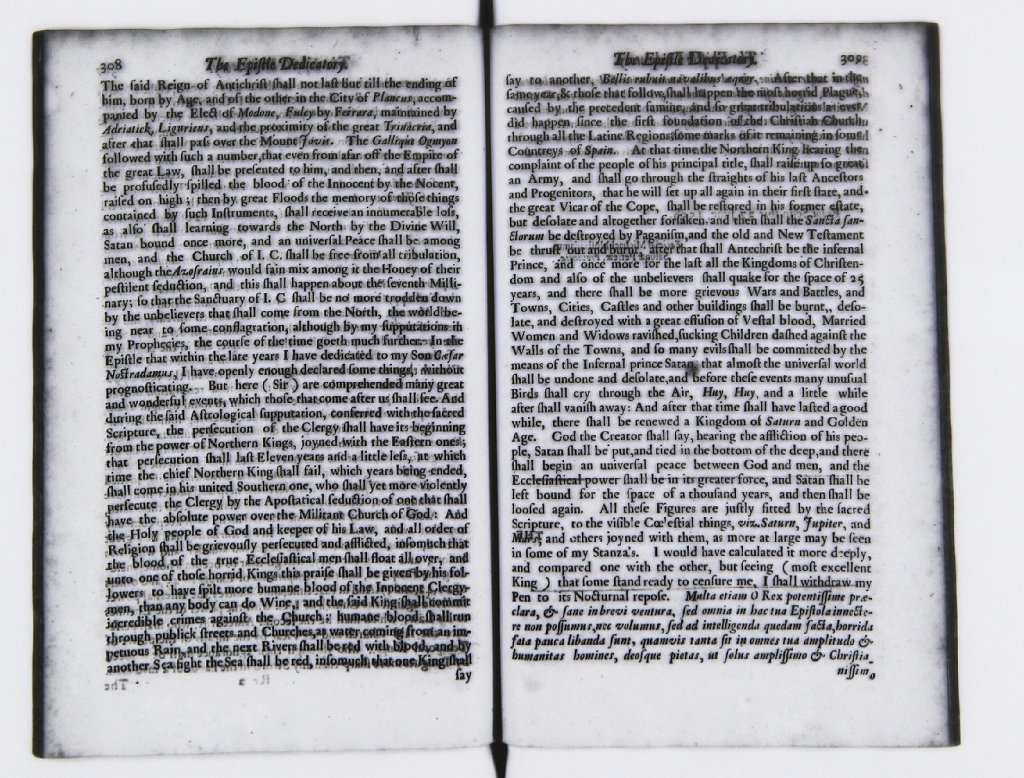 308 The Epistle Dedicatory.
The said Reign of Antichrist shall not last but till the ending of
him, born by Age, and of the other in the City of Plancus, accom-
panied by the Elect of Modone, Fulcy by Ferrara, maintained by
Adriatick, Liguriens, and the proximity of the great Trinacria, and
after that shall pass over the Mount Jovis. The Gallique Ogmyon
followed with such a number, that even from afar off the Empire of
the great Law, shall be presented to him, and then, and after shall
be profusedly spilled the blood of the Innocent by the Nocent,
raised on high; then by great Floods the memory of those things
contained by such Instruments, shall receive an innumerable loss,
as also shall learning towards the North by the Divine Will,
Satan bound once more, and an universal Peace shall be among
men, and the Church of I. C. shall be free from all tribulation,
although the Azostains would fain mix among it the Honey of their
pestilent seduction, and this shall happen about the seventh Milli-
nary; so that the Sanctuary of I. C shall be no more trodden down
by the unbelievers that shall come from the North, the world be-
ing near to some conflagration, although by my supputations in
my Prophecies, the course of the time goeth much further. In the
Epistle that within the late years I have dedicated to my Son Cæsar
Nostradamus, I have openly enough declared some things, without
prognosticating. But here ( Sir ) are comprehended many great
and wonderful events, which those that come after us shall see. And
during the said Astrological supputation, conferred with the sacred
Scripture, the persecution of the Clergy shall have its beginning
from the power of Northern Kings, joyned with the Eastern ones;
that persecution shall last Eleven years and a little less, at which
time the chief Northern King shall fail, which years being ended,
shall come in his united Southern one, who shall yet more violently
persecute the Clergy by the Apostatical seduction of one that shall
have the absolute power over the Militant Church of God: And
the Holy people of God and keeper of his Law, and all order of
Religion shall be grievously persecuted and afflicted, insomuch that
the blood of the true Ecclesiastical men shall float all over, and
unto one of those horrid Kings this praise shall be given by his fol-
lowers to have spilt more humane blood of the Innocent Clergy-
men, than any body can do Wine, and the said King shall commit
incredible crimes against the Church; humane blood shall run
through publick streets and Churches, as water coming from an im-
petuous Rain, and the next Rivers shall be red with blood, and by
another Sea fight the Sea shall be red, insomuch that one King shall
say
The Epistle Dedicatory. 309
say to another, Bellis rubuit navalibus æquor. After that in the
same year, & those that follow, shall happen the most horrid Plague,
caused by the precedent famine, and so great tribulations as ever
did happen since the first foundation of the Christian Church,
through all the Latine Regions, some marks of it remaining in some
Countreys of Spain. At that time the Northern King hearing the
complaint of the people of his principal title, shall raise up so great
an Army, and shall go through the straights of his last Ancestors
and Progenitors, that he will set up all again in their first state, and
the great Vicar of the Cope, shall be restored in his former estate,
but desolate and altogether forsaken and then shall the Sancta san-
ctorum be destroyed by Paganism, and the old and New Testament
be thrust out and burnt, after that shall Antechrist be the infernal
Prince, and once more for the last all the Kingdoms of Christen-
dom and also of the unbelievers shall quake for the space of 25
years, and there shall be more grievous Wars and Battles, and
Towns, Cities, Castles and other buildings shall be burnt, deso-
late, and destroyed with a great effusion of Vestal blood, Married
Women and Widows ravished, sucking Children dashed against the
Walls of the Towns, and so many evils shall be committed by the
means of the Infernal prince Satan, that almost the universal world
shall be undone and desolate, and before these events many unusual
Birds shall cry through the Air, Huy, Huy, and a little while
after shall vanish away: And after that time shall have lasted a good
while, there shall be renewed a Kingdom of Saturn and Golden
Age. God the Creator shall say, hearing the affliction of his peo-
ple, Satan shall be put, and tied in the bottom of the deep, and there
shall begin an universal peace between God and men, and the
Ecclesiastical power shall be in its greater force, and Satan shall be
left bound for the space of a thousand years, and then shall be
loosed again. All these Figures are justly fitted by the sacred
Scripture, to the visible Cœlestial things, viz. Saturn, Jupiter, and
Mars, and others joyned with them, as more at large may be seen
in some of my Stanza's. I would have calculated it more deeply,
and compared one with the other, but seeing ( most excellent
King ) that some stand ready to censure me, I shall withdraw my
Pen to its Nocturnal repose. Multa etiam O Rex potentissime præ-
clara, & sane in brevi ventura, sed omnia in hac tua Epistola innecte-
re non possumus, nec volumus, sed ad intelligenda quedam facta, horrida
fata pauca libanda sunt, quamvis tanta sit in omnes tua amplitudo &
humanitas homines, deosque pietas, ut solus amplissimo & Christia-
nissimo